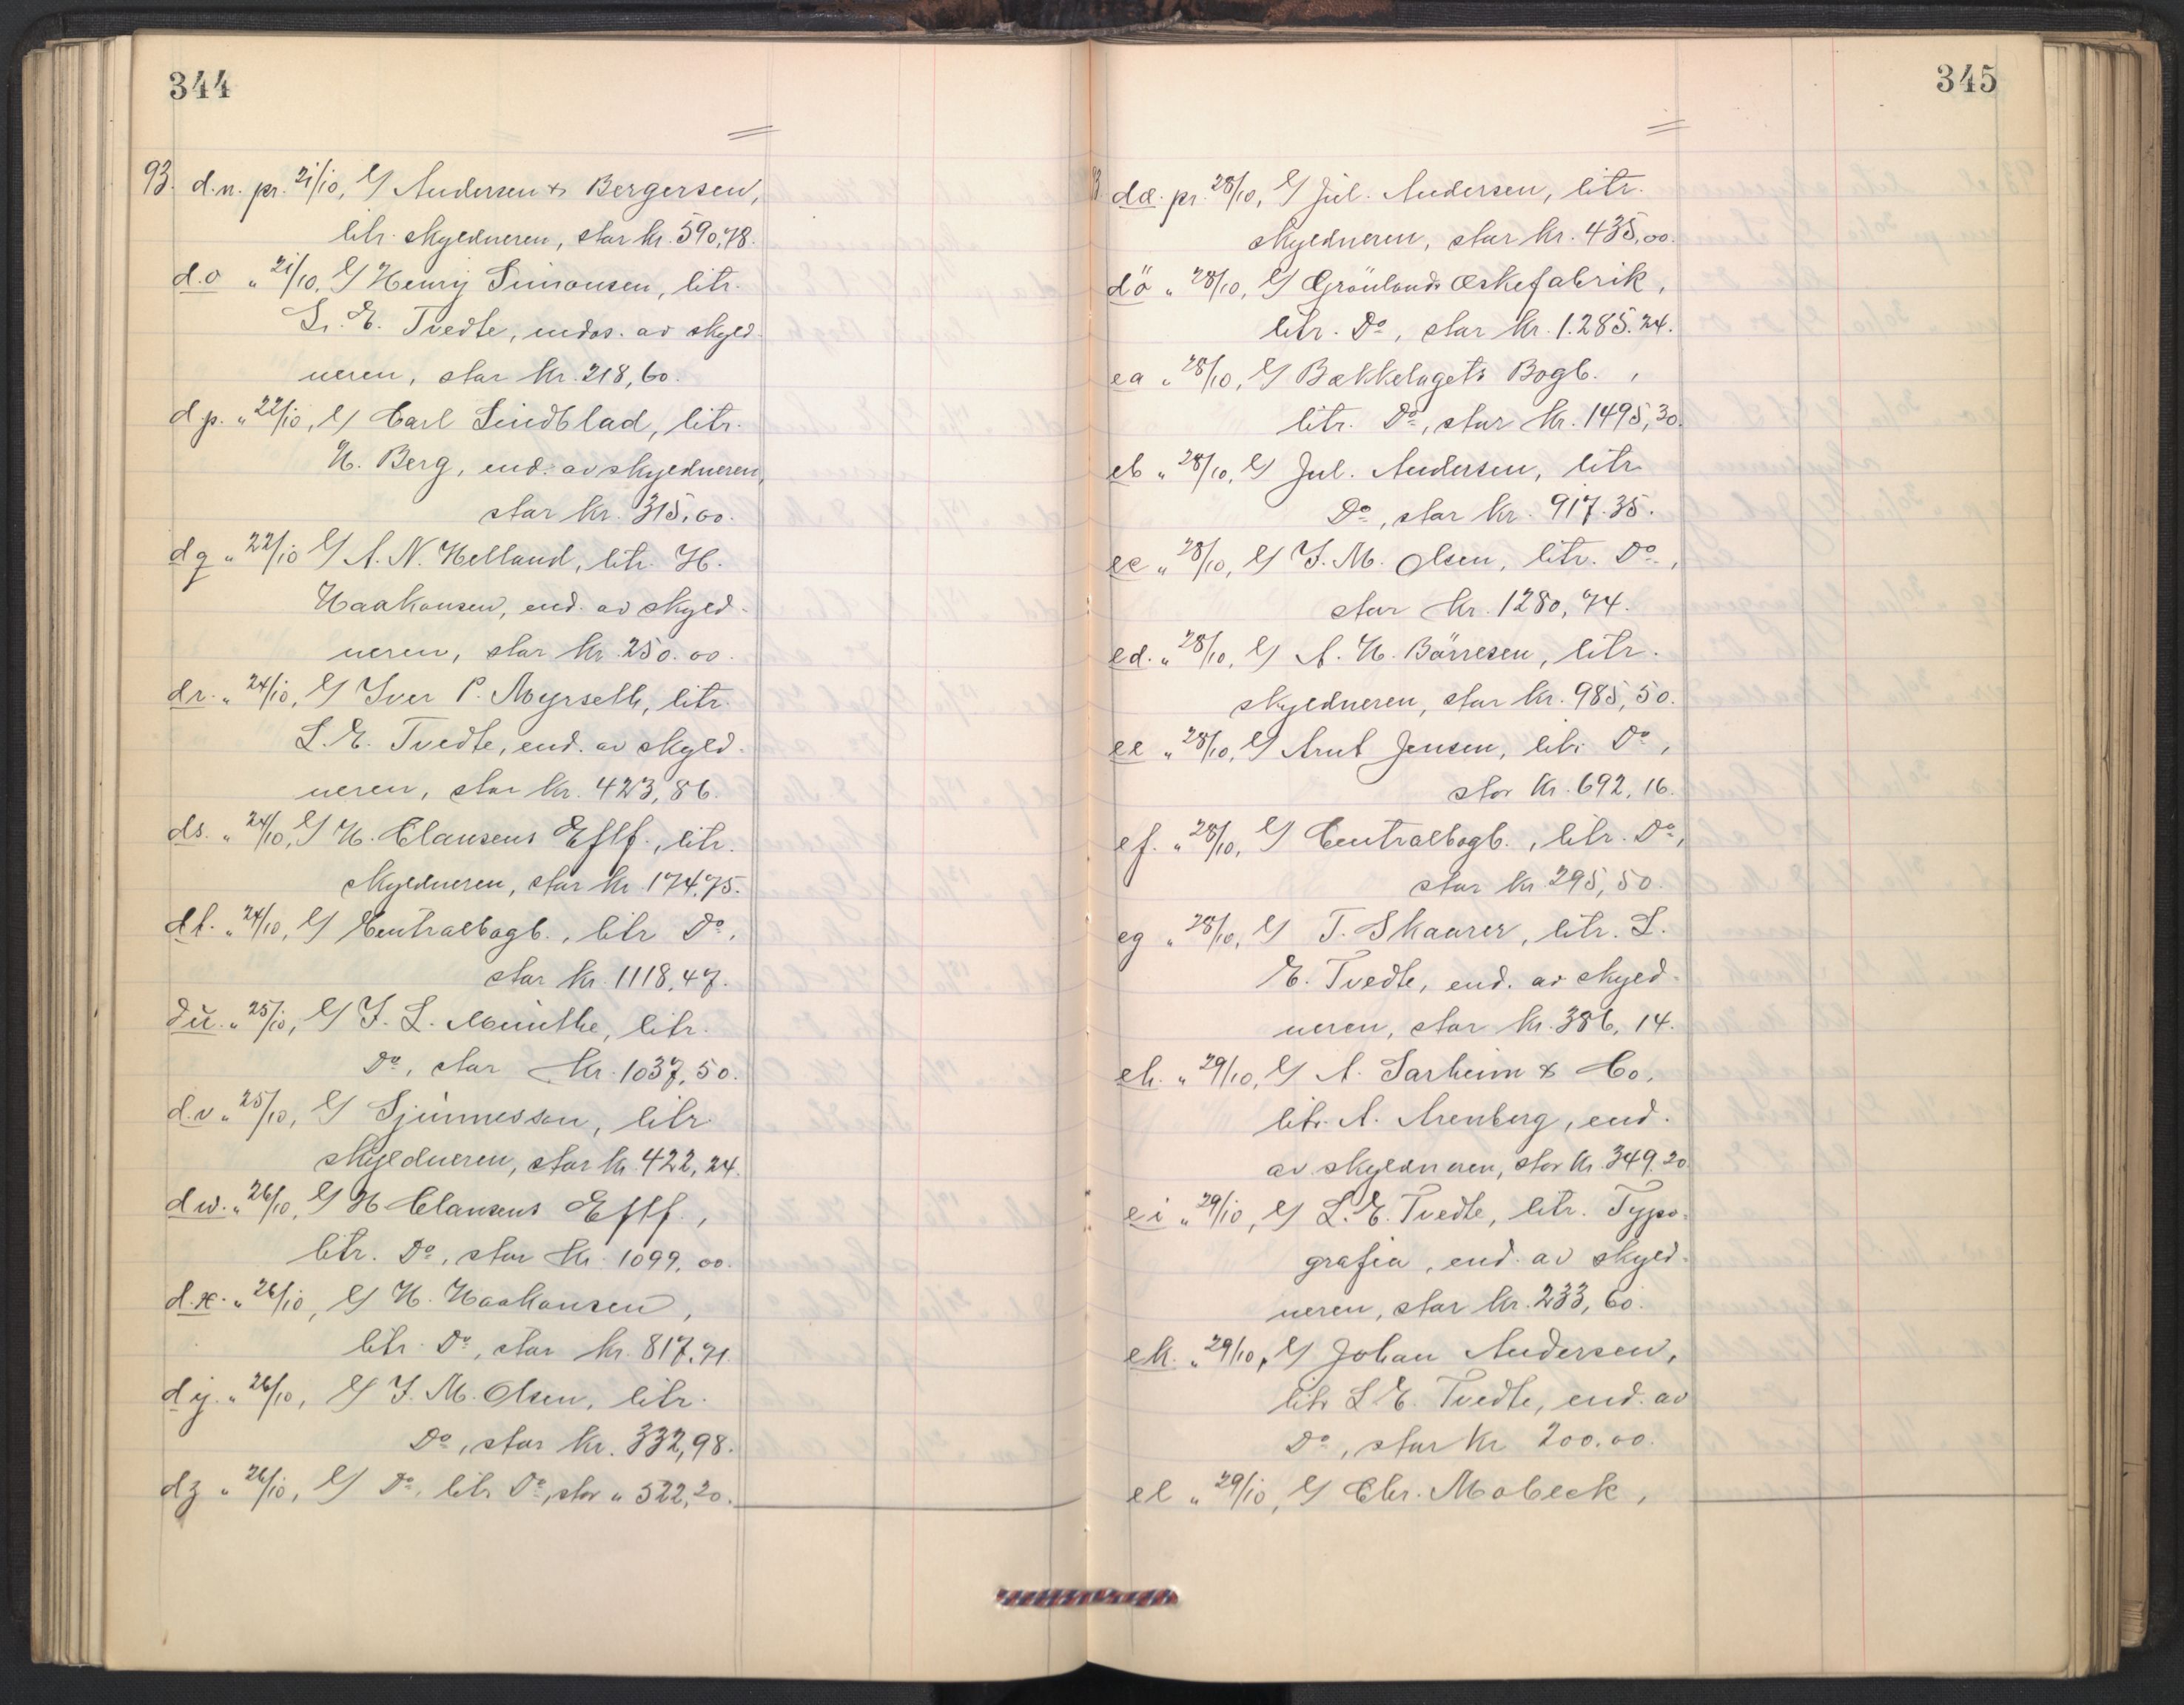 344
93. d.n. pr. 21/10, e/ Andersen & Bergersen,
litr. skyldneren, stor kr. 590,78.
d.o „ 21/10, e/ Henry Simonsen, litr.
L. E. Tvedte, endos. av skyld-
neren, stor kr. 218,60.
d.p. „ 22/10, e/ Carl Lindblad, litr.
H. Berg, end. av skyldneren,
stor kr. 315,00.
dq „ 22/10 e/ A. N. Helland, litr. H.
Haakonsen, end. av skyld-
neren, stor kr. 250.00.
dr. „ 24/10, e/ Iver P. Myrseth, litr.
L. E. Tvedte, end. av skyld-
neren, stor kr. 423,86.
ds. „ 24/10, e/ H. Clausens Eftf., litr.
skyldneren, stor kr. 174,75.
dt. „ 24/10, e/ Centralbogb., litr Do,
stor kr. 1118,47.
du. „ 25/10, e/ J. L. Munthe, litr.
Do, stor kr. 1037,50.
d.v „ 25/10, e/ Sjunnesson, litr.
skyldneren, stor kr. 422,24.
dw. „ 26/10, e/ H Clausens Eftf.,
litr. Do, stor kr. 1099,00.
d.x. „ 26/10, e/ H. Haakonsen,
litr. Do, stor kr. 817,71.
dy. „ 26/10, e/ J. M. Olsen, litr.
Do, stor kr. 332,98.
dz „ 26/10, e/ Do, litr Do, stor „ 522,20.
345
dæ. pr. 28/10, e/ Jul. Andersen, litr.
skyldneren, stor kr. 435,00.
dö „ 28/10, e/ Grönlands Æskefabrik,
litr. Do, stor kr. 1.285.24.
ea „ 28/10, e/ Bækkelagets Bogb.,
litr. Do, stor kr. 1495,30.
eb „ 28/10, e/ Jul. Andersen, litr
Do, stor kr. 917.35.
ec „ 28/10, e/ J. M. Olsen, litr. Do,
stor kr. 1280,74.
ed. „ 28/10, e/ A. H. Börresen, litr.
skyldneren, stor kr. 985,50.
ee „ 28/10, e/ Arnt Jensen, litr Do,
stor kr. 692,16.
ef. „ 28/10, e/ Centralbogb., litr. Do,
stor kr. 295,50.
eg „ 28/10, e/ T. Skaarer, litr. L.
E. Tvedte, end. av skyld-
neren, stor kr. 386,14.
eh. „ 29/10, e/ A. Sarheim & Co,
litr. A. Arenberg, end.
av skyldneren, stor kr. 349.20
ei „ 29/10, e/ L. E. Tvedte, litr. Typo-
grafia, end. av skyld-
neren, stor kr. 233,60.
ek. „ 29/10, e/ Johan Andersen,
litr L. E. Tvedte, end. av
Do, stor kr 200.00.
el „ 29/10, e/ Chr. Mobeck,